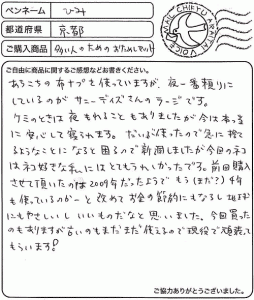 ペンネーム ひみ
都道府県 京都
ご購入商品 多い人のためのおためしセット
ご自由に商品に関するご感想などお書きください。
あちこちの布ナプを使っていますが、夜一番頼りに
しているのが サニーデイズさんのラージです。
ケミのときは夜もれることもありましたが今は本当
に安心して寝られます。だいぶ使ったので急に捨て
るようなことに なると困るので新調しましたが今回のネコ
はネコ好きな私にはとてもうれしかったです。前回購入
させて頂いたのは2009年だったようで もう(まだ?)4年
も使っているのかーと 改めてお金の節約にもなるし 地球
にもやさしいし いいものだなと思いました。今回買った
のもありますが古いのもまだまだ使えるので現役で頑張って
もらいます!
ご協力ありがとうございました。
MAIL CHIKYU ARAITAI VOICE